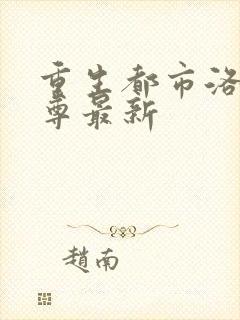 重生都市洛
尊最新
趙南